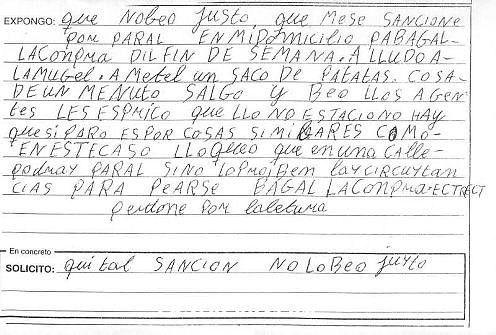 EXPONGO: que NOBEO JUSTO que MESE SANCIONE
POR PARAL EN MI DOMICILIO PABAGAL-
LACONPRA DIL FIN DE SEMANA. A LLUDO A-
LAMUGEL. A METEL un SACO DE PATATAS. COSA-
DE UN MENUTO SALGO Y BEO LLOS AGEN-
tes LES ESPRICO que LLO NO ESTACIONO HAY
que SI PARO ES POR COSAS SIMILARES COMO-
EN ESTE CASO LLO CREO que EN UNA CALLE-
PODRAY PARAL SI NO LO PROJIBEN LAY CIRCUYTAN
CIAS PARA PEARSE BAGAL LA CONPRA. ECTRECT
Perdone POR LA LETURA
En concreto
SOLICITO: quital SANCION NO LO BEO juyto